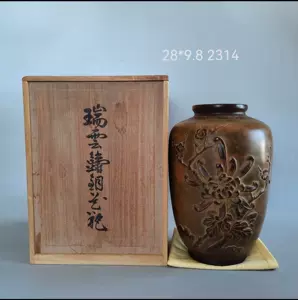 28*9.8 2314
瑞雲鑄銅花瓶